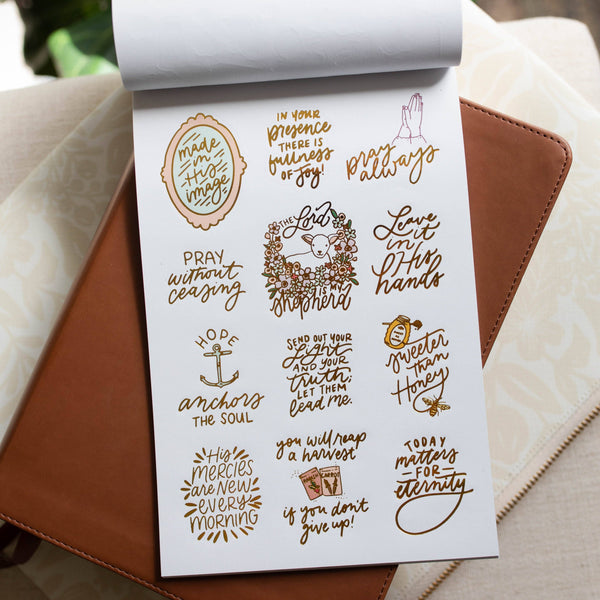 made
in
His
image
IN YOUR
presence
THERE IS
fullness
OF Joy!
pray
always
PRAY
without
ceasing
THE Lord
IS MY
shepherd
Leave
it in
His
hands
HOPE
anchors
THE SOUL
SEND OUT YOUR
light
AND YOUR
truth;
LET THEM
lead me.
sweeter
than
Honey
His
MERCIES
are NEW
every
MORNING
you will reap
a harvest
if you don't
give up!
TODAY
matters
FOR
eternity